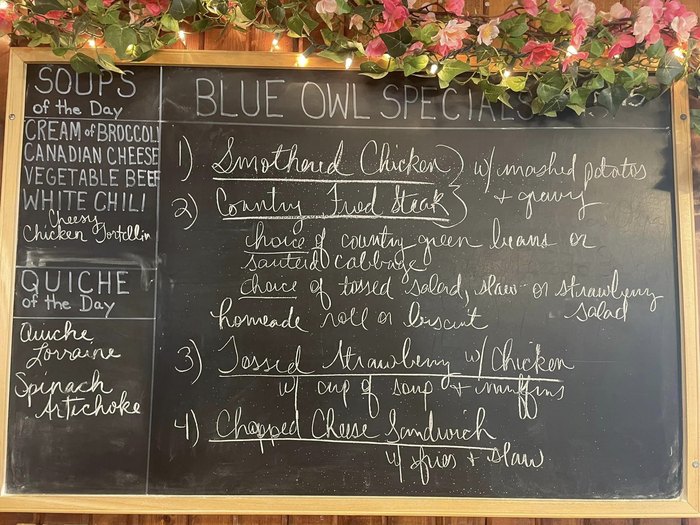 SOUPS
of the Day
CREAM of BROCCOLI
CANADIAN CHEESE
VEGETABLE BEEF
WHITE CHILI
Cheesy
Chicken Tortellin
QUICHE
of the Day
Quiche
Lorraine
Spinach
Artichoke
BLUE OWL SPECIALS
1) Smothered Chicken } w/ mashed potatos
2) Country Fried Steak + gravy
choice of country green beans or
sauteéd cabbage
choice of tossed salad, slaw or strawberry
salad
homeade roll or biscuit
3) Tossed Strawberry w/ Chicken
w/ cup of soup + muffins
4) Chopped Cheese Sandwich
w/ fries + slaw